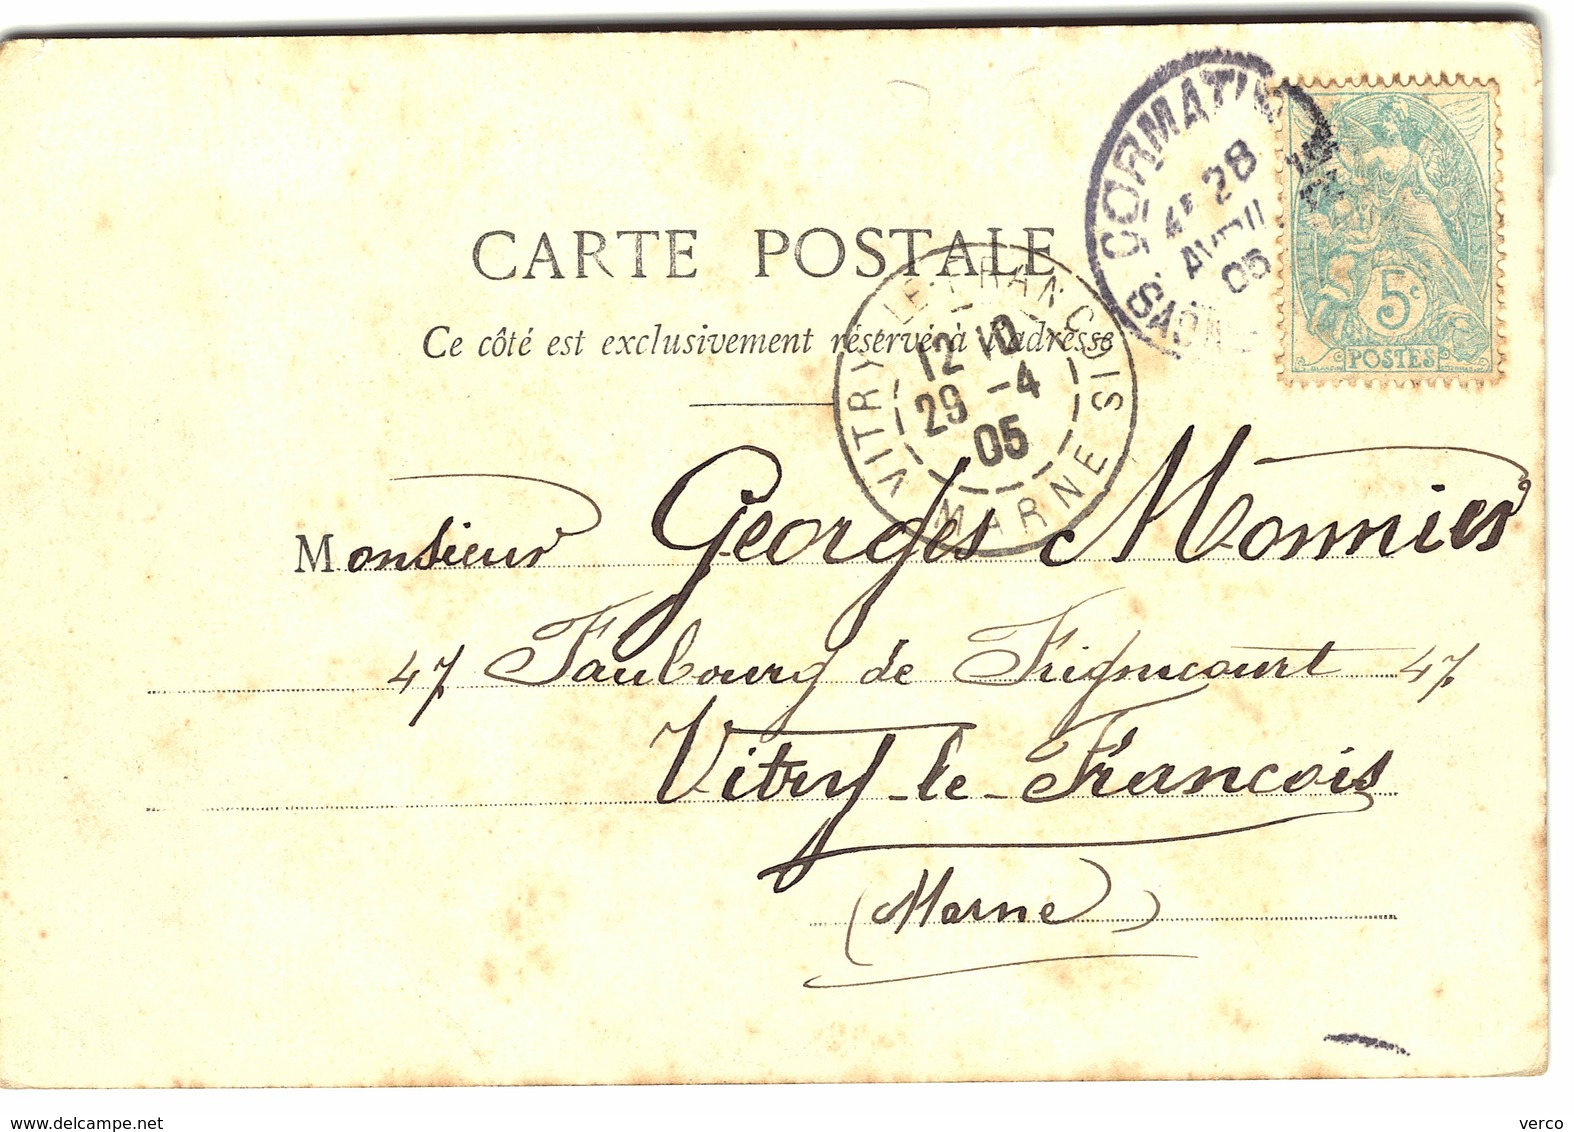 CARTE POSTALE
Ce côté est exclusivement réservé à l'adresse
CORMATIN
4E 28
AVRIL
05
5c
POSTES
VITRY-LE-FRANCOIS
12 10
29 -4
05
MARNE
Monsieur Georges Monnier
47 Faubourg de Frignicourt 47
Vitry-le-Francois
(Marne)
www.delcampe.net
verco